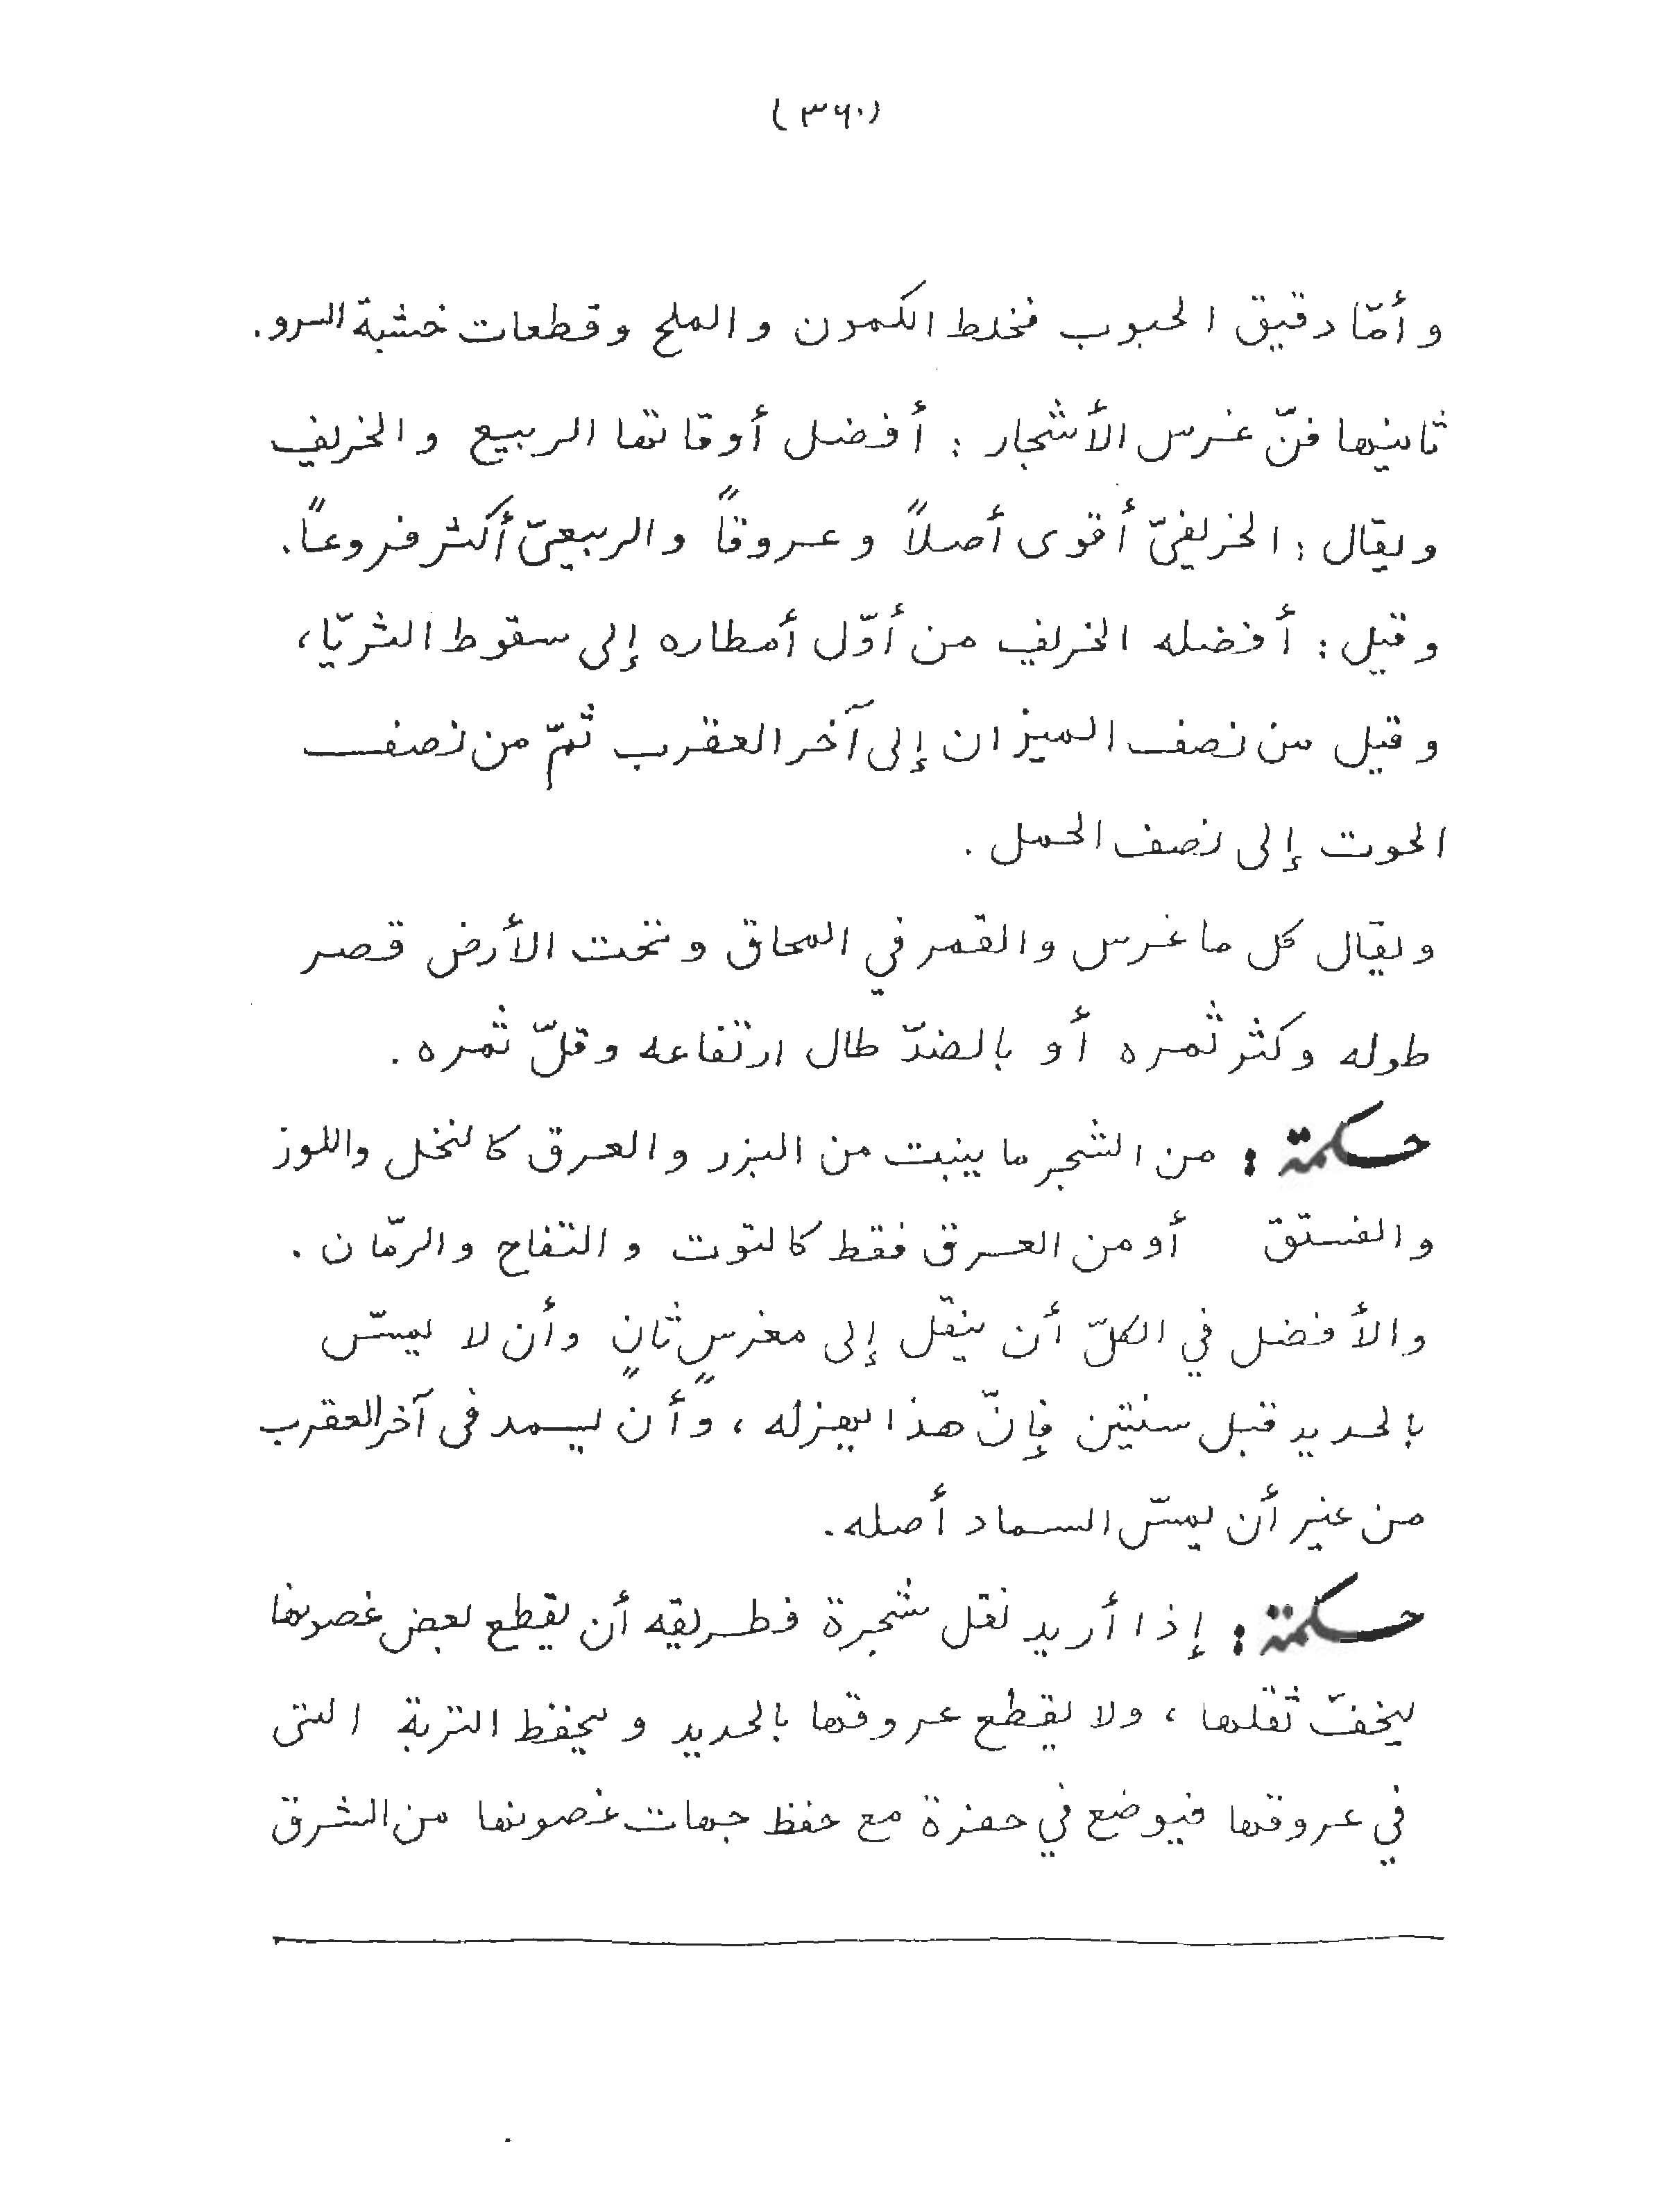 (٣٦٠)
و أمّا دقيق الحبوب فخلط الكمون و الملح و قطعات خشبة السرو.
ثانيها فنّ غرس الأشجار : أفضل أوقاتها الربيع و الخريف
و يقال : الخريفيّ أقوى أصلاً و عروقاً و الربيعيّ أكثر فروعاً.
و قيل : أفضله الخريف من أوّل أمطاره إلى سقوط الثريّا،
و قيل من نصف الميزان إلى آخر العقرب ثمّ من نصف
الحوت إلى نصف الحمل .
و يقال كل ما غرس و القمر في المحاق و تحت الأرض قصر
طوله و كثر ثمره أو بالضدّ طال ارتفاعه و قلّ ثمره .
حكمة : من الشجر ما ينبت من البزر و العرق كالنخل واللوز
و الفستق أو من العرق فقط كالتوت و التفاح و الرمّان .
و الأفضل في الكلّ أن ينقل إلى مغرسٍ ثانٍ وأن لا يمسّ
بالحديد قبل سنتين فإنّ هذا يهزله ، و أن يسمد في آخر العقرب
من غير أن يمسّ السماد أصله.
حكمة : إذا أريد نقل شجرة فطريقه أن يقطع بعض غصونها
ليخفّ ثقلها ، ولا يقطع عروقها بالحديد و يحفظ التربة التي
في عروقها فيوضع في حفرة مع حفظ جهات غصونها من الشرق